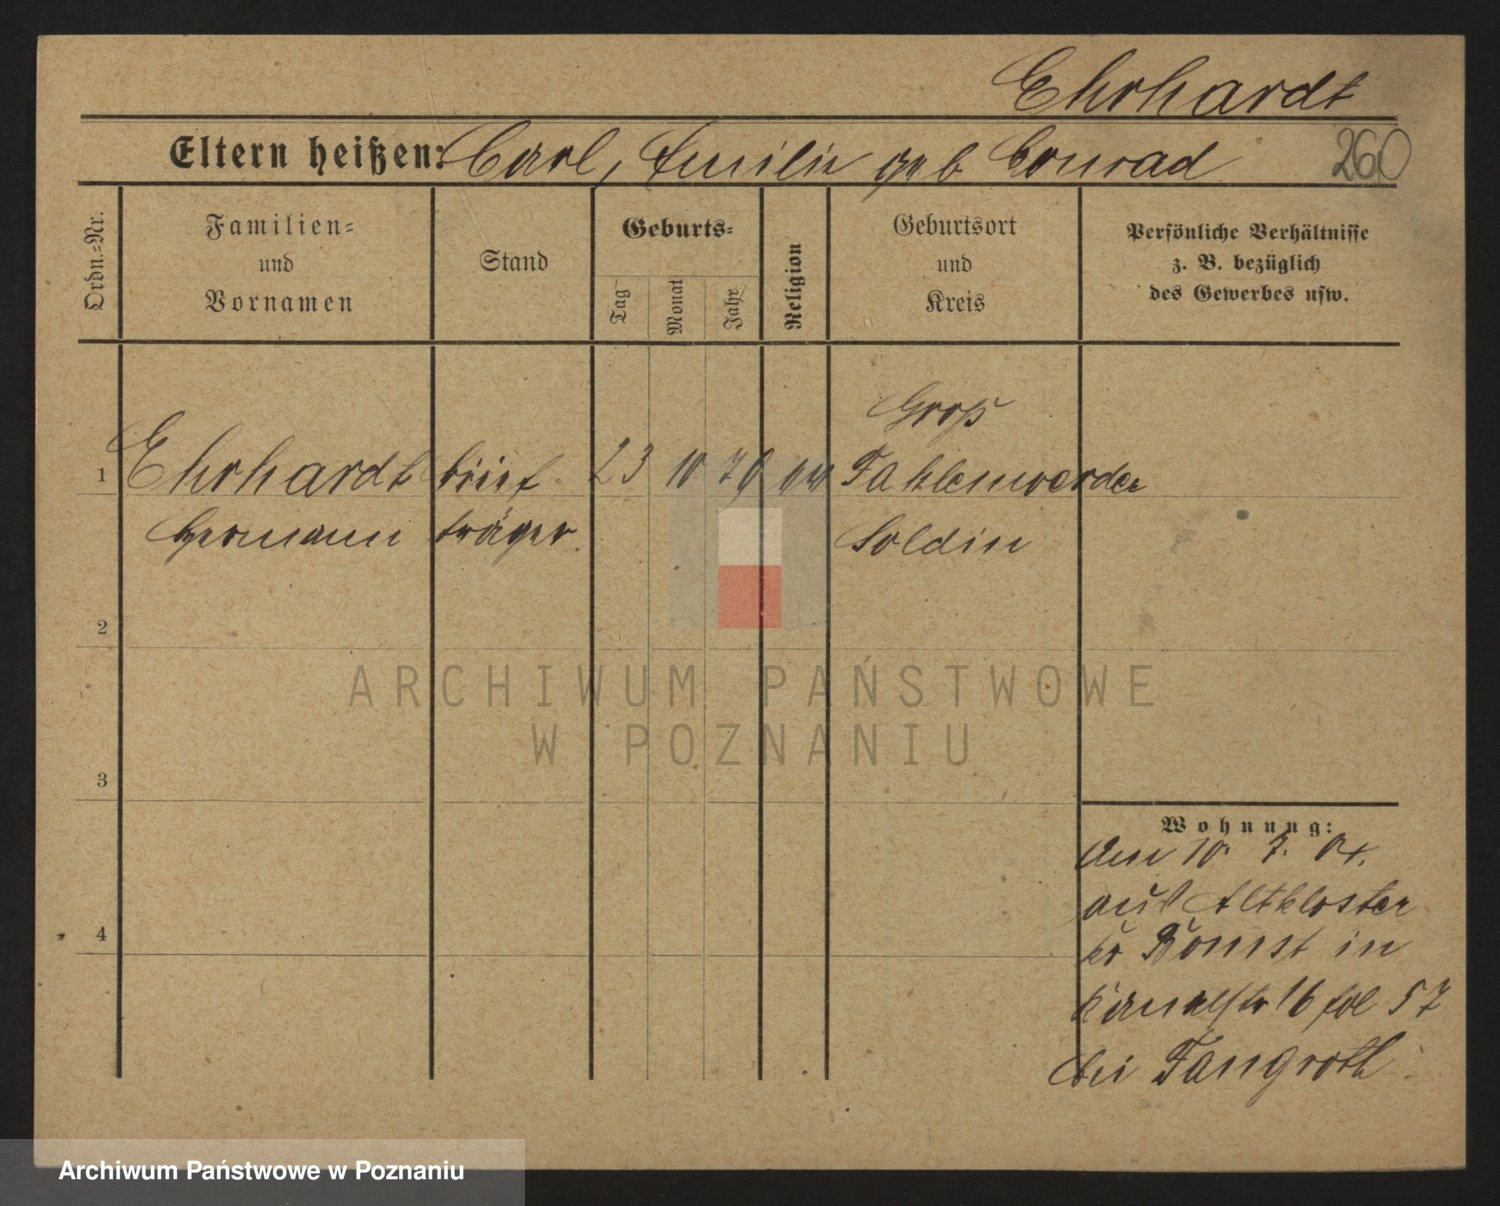 Ehrhardt
Eltern heißen: Carl, Emilie geb Conrad
260
Ordn.-Nr.
Familien-
und
Vornamen
Stand
Geburts-
Tag
Monat
Jahr
Religion
Geburtsort
und
Kreis
Persönliche Verhältnisse
z. B. bezüglich
des Gewerbes usw.
Groß
1 Ehrhardt brief 23 10 79 ev Fahlenwerder
Hermann träger Soldin
2
ARCHIWUM PAŃSTWOWE
W POZNANIU
3
Wohnung:
Am 10. 7. 04.
aus Altkloster
Kr Bomst in
Kanalstr 16 fol 57
bei Tangroth
4
Archiwum Państwowe w Poznaniu